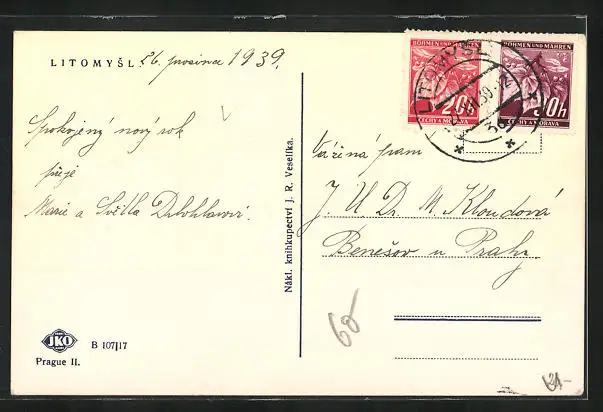 LITOMYŠL 26. prosince 1939.
Spokojený nový rok
přeje
Marie a Světla
Nákl. knihkupectví J. R. Veselíka.
BÖHMEN UND MÄHREN
20h
ČECHY A MORAVA
BÖHMEN UND MÄHREN
30h
ČECHY A MORAVA
LITOMYŠL
Vážená paní
J. U. Dr. M. Kloudová
Benešov u Prahy.
60
JKO
B 107/17
Prague II.
21-